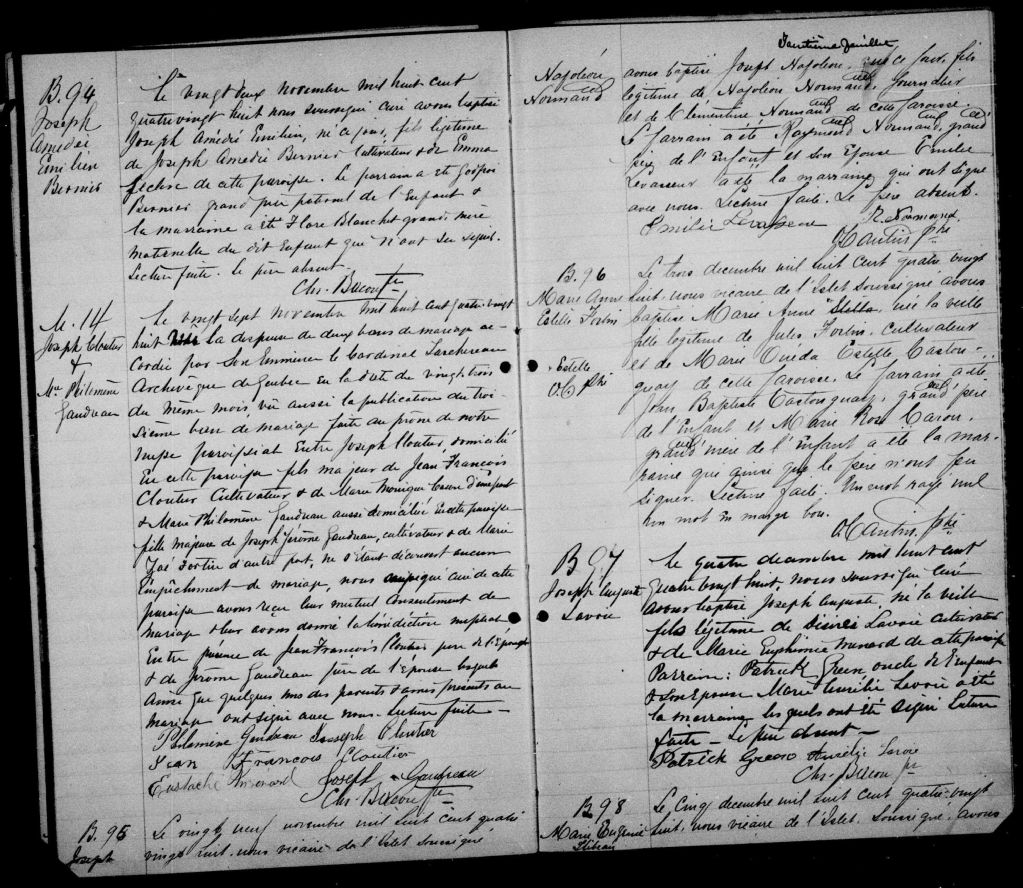 B. 94
Joseph
Amédée
Emilien
Bernier
Le vingt deux novembre mil huit cent
quatrevingt huit nous soussigné curé avons baptisé
Joseph Amédé Emilien, né ce jour, fils légitime
de Joseph Amedée Bernier cultivateur & de Emma
de cette paroisse. Le parrain a été
Bernier grand père paternel de l'Enfant &
la marraine a été Flore Blanchet grand mère
maternelle du dit Enfant qui n'ont su signer.
Lecture faite. Le père absent.
Chs. Bacon Ptre
M. 14
Joseph Cloutier
&
Me Philomène
Gaudreau
Le vingt sept novembre mil huit cent quatre vingt
huit la dispense de deux bans de mariage ac-
cordée par Son Eminence le Cardinal Taschereau
Archevêque de Québec en la date du vingt trois
du même mois, vû aussi la publication du troi-
sième ban de mariage faite au prône de notre
messe paroissiale Entre Joseph Cloutier, domicilié
En cette paroisse fils majeur de Jean François
Cloutier Cultivateur & de Marie Monique Caron d'une part
& Marie Philomène Gaudreau aussi domiciliée En cette paroisse
fille majeure de Joseph Jérôme Gaudreau, cultivateur & de Marie
Zoé Fortin d'autre part, ne s'étant découvert aucun
Empêchement de mariage, nous curé de cette
paroisse avons reçu leur mutuel consentement de
mariage & leur avons donné la bénédiction nuptiale
En présence de Jean François Cloutier père de l'Epoux
& de Jérôme Gaudreau père de l'Epouse lesquels
Ainsi que quelques uns des parents & amis présents au
mariage ont signé avec nous. Lecture faite —
Philomène Gaudreau Joseph Cloutier
Jean François Cloutier
Eustache Joseph Gaudreau
Chs. Bacon Ptre
B. 95
Joseph
Le vingt neuf novembre mil huit cent quatre
vingt huit. nous vicaire de l'Islet soussigné
Napoléon
Normand
avons baptisé Joseph Napoléon, né ce jour, fils
légitime de Napoléon Normand, journalier
et de Clémentine Normand de cette paroisse.
Le parrain a été Raymond Normand, grand
père de l'Enfant et son Epouse Emilie
Levasseur a été la marraine qui ont signé
avec nous. Lecture faite. Le père absent.
Emilie Levasseur R. Normand
Ptre
B. 96
Marie Anne
Estelle Fortin
+ Estelle
Ptre
Le trois decembre mil huit cent quatre vingt
huit. nous vicaire de l'Islet soussigné avons
baptisé Marie Anne née la veille
fille légitime de Jules Fortin, cultivateur
et de Marie Estelle Caston-
guay de cette paroisse. Le parrain a été
Jean Baptiste Castonguay, grand père
de l'Enfant et Marie Rose Caron,
grand'mère de l'Enfant a été la mar-
raine qui ainsi que le père n'ont su
signer. Lecture faite. Un mot rayé nul
Un mot En marge bon.
Ptre
B 97
Joseph Auguste
Lavoie
Le quatre decembre mil huit cent
quatre vingt huit, nous soussigné curé
avons baptisé Joseph Auguste, né la veille
fils légitime de Désiré Lavoie cultivateur
& de Marie Euphémie de cette paroisse
Parrain: Patrick Green, oncle de l'enfant
& son Epouse Marie Aurélie Lavoie a été
la marraine lesquels ont été signer Lecture
faite — Le père absent —
Patrick Green Aurélie Lavoie
Chs. Bacon Ptre
B 98
Marie Eugénie
Le cinq decembre mil huit cent quatre-vingt
huit. nous vicaire de l'Islet. soussigné. avons